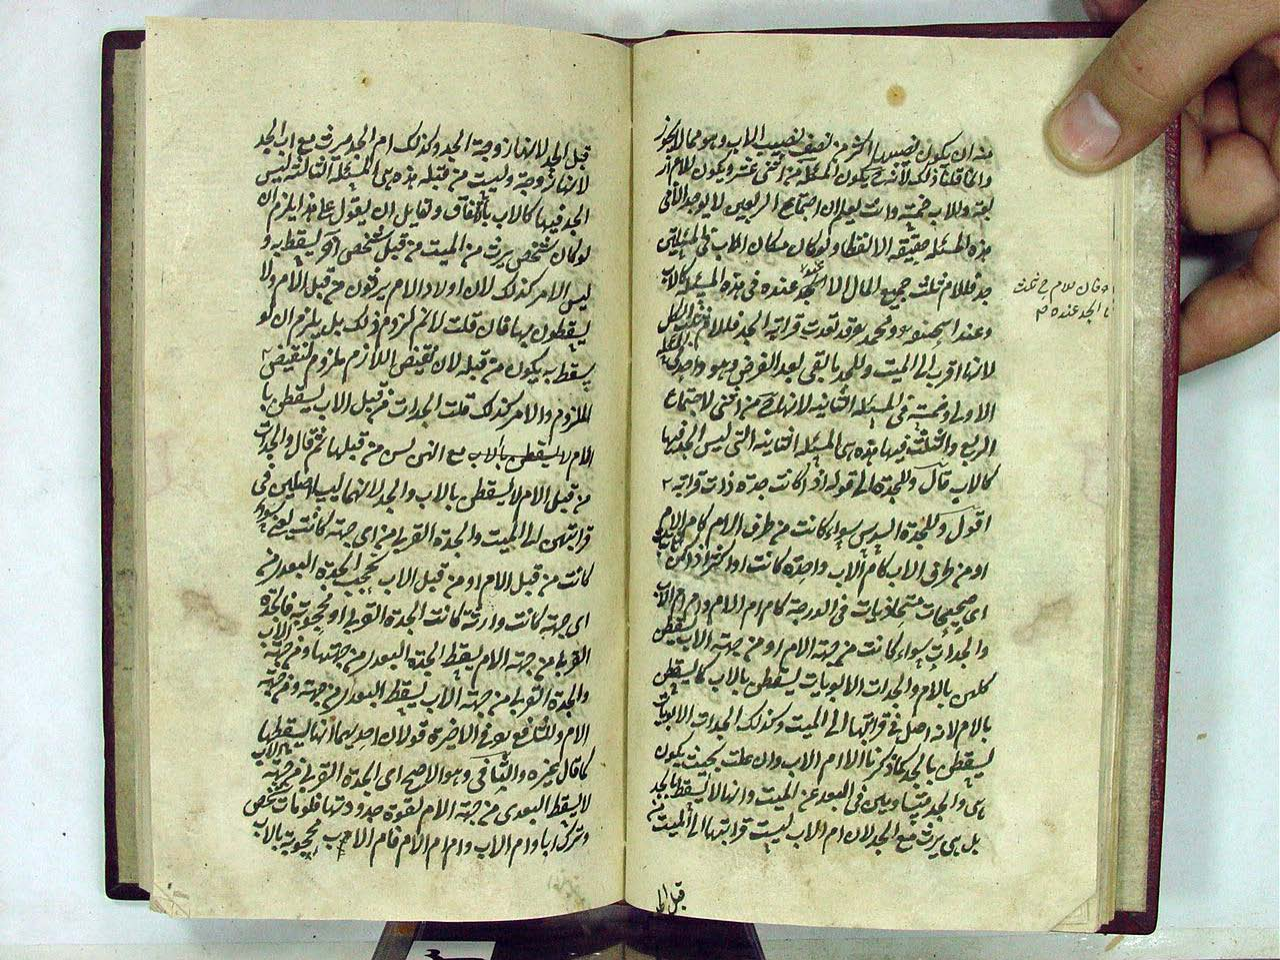 منه ان يكون نصيبها اكثر من نصف نصيب الاب وهو مما لا يجوز
وانما قلنا ذلك لانه ح يكون المسئلة من اثنى عشر ويكون للام ار
بعة وللاب خمسة وانت تعلم ان اجتماع الربعين لا يوجد الا في
هذه المسئلة حقيقة الا لفظا ولو كان مكان الاب في المسئلتين
جد فللام ثلث جميع المال الا عند الجد عنده في هذه المسئلة كالاب
وعند ومحمد قرابة الجد فللام ثلث الكل
لانها اقرب الى الميت وللجد ما بقى بعد الفرض وهو واحد في المسئلة
الاولى وخمسة في المسئلة الثانية لانها ح من اثنى لاجتماع
الربع والثلث فيها هذه هى المسئلة الثانية التى ليس الجد فيها
كالاب قال وللجدة الى قوله اذا كانت جدة ذات قرابة
اقول وللجدة السدس سواء كانت من طرف الام كام الام
او من طرف الاب كام الاب واحدة كانت او اكثر اذا كن ثابتات
اى صحيحات متحاذيات في الدرجة كام ام الام وام ام الاب
والجدات سواء كانت من جهة الام او من جهة الاب يسقطن
كلهن بالام والجدات الابويات يسقطن بالاب كما يسقطن
بالام لانه اصل في قرابتها الى الميت وكذلك الجدات الابويات
يسقطن بالجد كما ذكرنا الا ام الاب وان علت بحيث يكون
هى والجد متساويين في البعد عن الميت وانها لا يسقط بالجد
بل هى يرث مع الجد لان ام الاب ليست قرابتها الى الميت من
قبل الجد
قال للام ح ثلث
الجد عنده
قبل الجد لانها زوجة الجد وكذلك ام الجد يرث مع اب الجد
لانها زوجة وليست من قبله هذه هى المسئلة الثالثة ليس
الجد فيها كالاب بالاتفاق ولقائل ان يقول على هذا يلزم ان
لو كان شخص يرث من الميت من قبل شخص آخر يسقط به و
ليس الامر كذلك لان اولاد الام يرثون من قبل الام ولا
يسقطون بها فان قلت لا نم لزوم ذلك بل يلزم ان لو
يسقط به يكون من قبله لان نقيض اللازم ملزوم لنقيض
الملزوم والامر كذلك قلت الجدات من قبل الاب يسقطن با
الام لا يسقطن بالاب مع انهن ليس من قبلها ثم قال والجدات
من قبل الام لا يسقطن بالاب والجد لانهما ليسا اصلين في
قرابتهن الى الميت والجدة القربى من اى جهة كانت يعنى سواء
كانت من قبل الام او من قبل الاب تحجب الجدة البعدى من
اى جهة كانت وارثة كانت الجدة القربى او محجوبة فالجدة
القربى من جهة الام يسقط الجدة البعدى من جهتها ومن جهة الاب
والجدة القربى من جهة الاب يسقط البعدى من جهته ومن جهة
الام وللشافعي في الاخيرة قولان احديهما انها يسقطها
كما قال غيره والثانى وهو الاصح اى الجدة القربى من جهة الاب
لا يسقط البعدى من جهة الام لقوة جدودتها فلو مات شخص
وترك ابا وام الاب وام ام الام فام الاب محجوبة بالاب